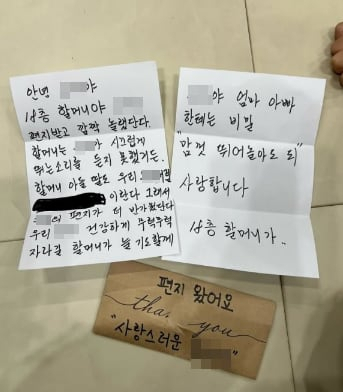 안녕 야
14층 할머니야
편지받고 깜짝 놀랬단다
할머니는 가 시끄럽게
뛰는소리를 듣지 못했거든.
할머니 아들 딸도 우리
이란다 그래서
의 편지가 더 반가웠단다
우리 건강하게 무럭무럭
자라길 할머니가 늘 기도할께
야 엄마 아빠
한테는 비밀
"맘껏 뛰어놀아도 되"
사랑합니다
14층 할머니가..
편지 왔어요
thank you
"사랑스러운